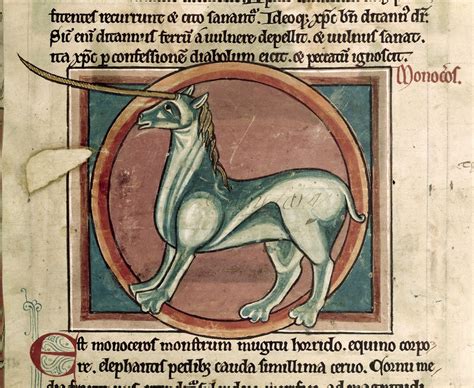 fitentes recurrunt & cito sanant᷑. Ideoq; xp̄c bn̄ ditann᷑ dr̄.
Sic̄ eni᷑ ditannus ferrū a uulnere depellit & uulnus sanat.
ita xp̄c p confessionē diabolum eicit. & peccatū ignoscit.
Monoc̄os.
Est monoceros monstrum mugitu horrido. equino corpo
re. elephantis pedib; cauda simillima ceruo. Cornu me